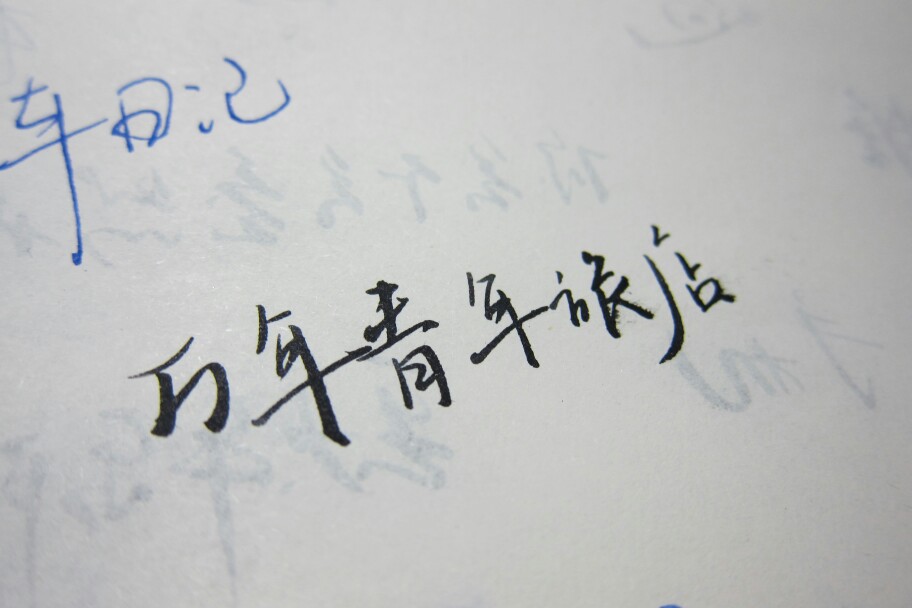 车日记
百年青年旅店